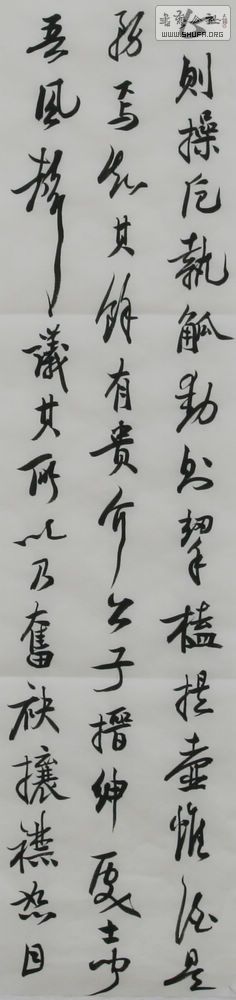 則操卮執觚動則挈榼提壺惟酒是
務焉知其餘有貴介公子搢紳處士聞
吾風聲議其所以乃奮袂攘襟怒目
WWW.SHUFA.ORG